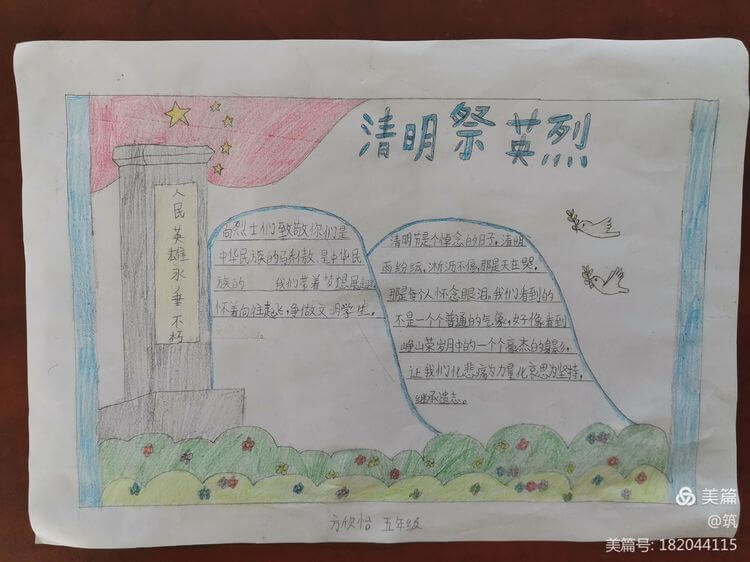 清明祭英烈
人民英雄永垂不朽
向烈士们致敬你们是
中华民族的马利敦.是中华民
族的 我们带着梦想展翅
怀着向往起飞,争做文明学生。
清明节是个悼念的日子,清明
雨纷纭,淅沥不停,那是天在哭,
那是每个人怀念眼泪。我们看到的
不是一个个普通的气象,好像看到
峥山荣岁月中的一个个豪杰的身影,
让我们化悲痛为力量化哀思为坚持,
继承遗志。
方欣怡 五年级
美篇
@筑
美篇号: 182044115